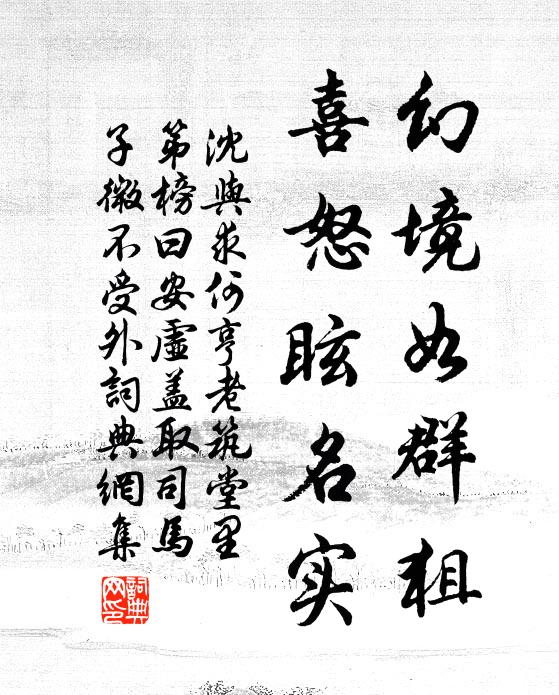 幻境如群狙
喜怒眩名实
沈與求何亨老筑堂里
第榜曰安虛盖取司馬
子微不受外詞典網集
詞典網印